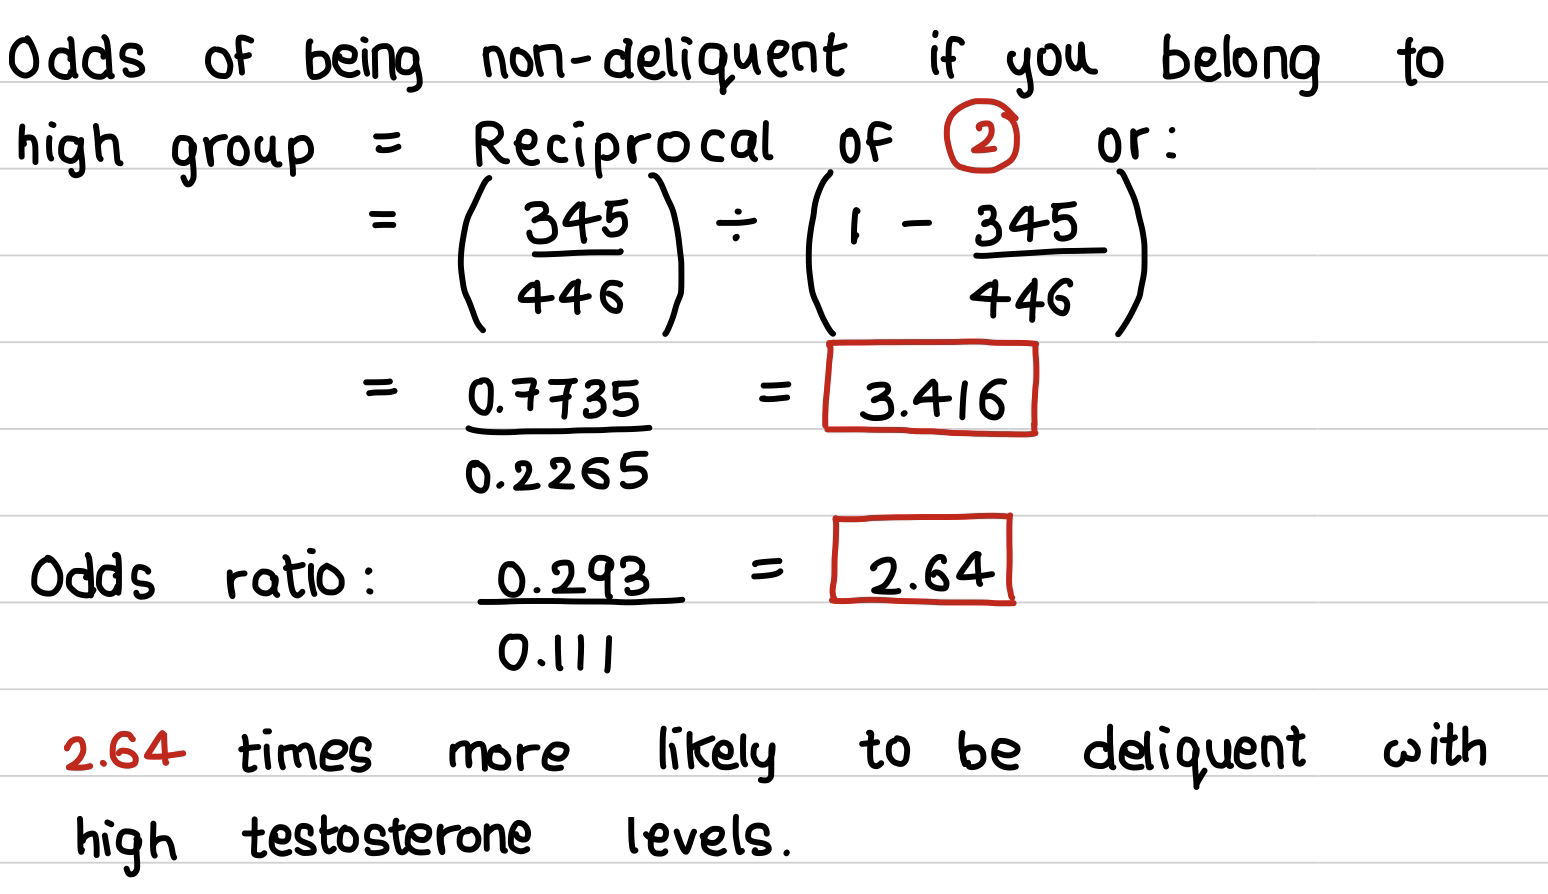 Odds of being non-deliquent if you belong to
high group = Reciprocal of ② or:
= (345/446) ÷ (1 - 345/446)
= 0.7735/0.2265 = 3.416
Odds ratio: 0.293/0.111 = 2.64
2.64 times more likely to be deliquent with
high testosterone levels.